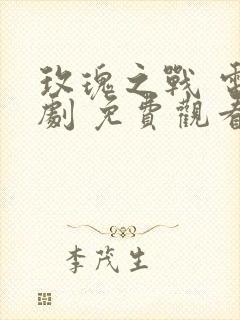 玫瑰之戰 電
劇 免費觀看
李茂生